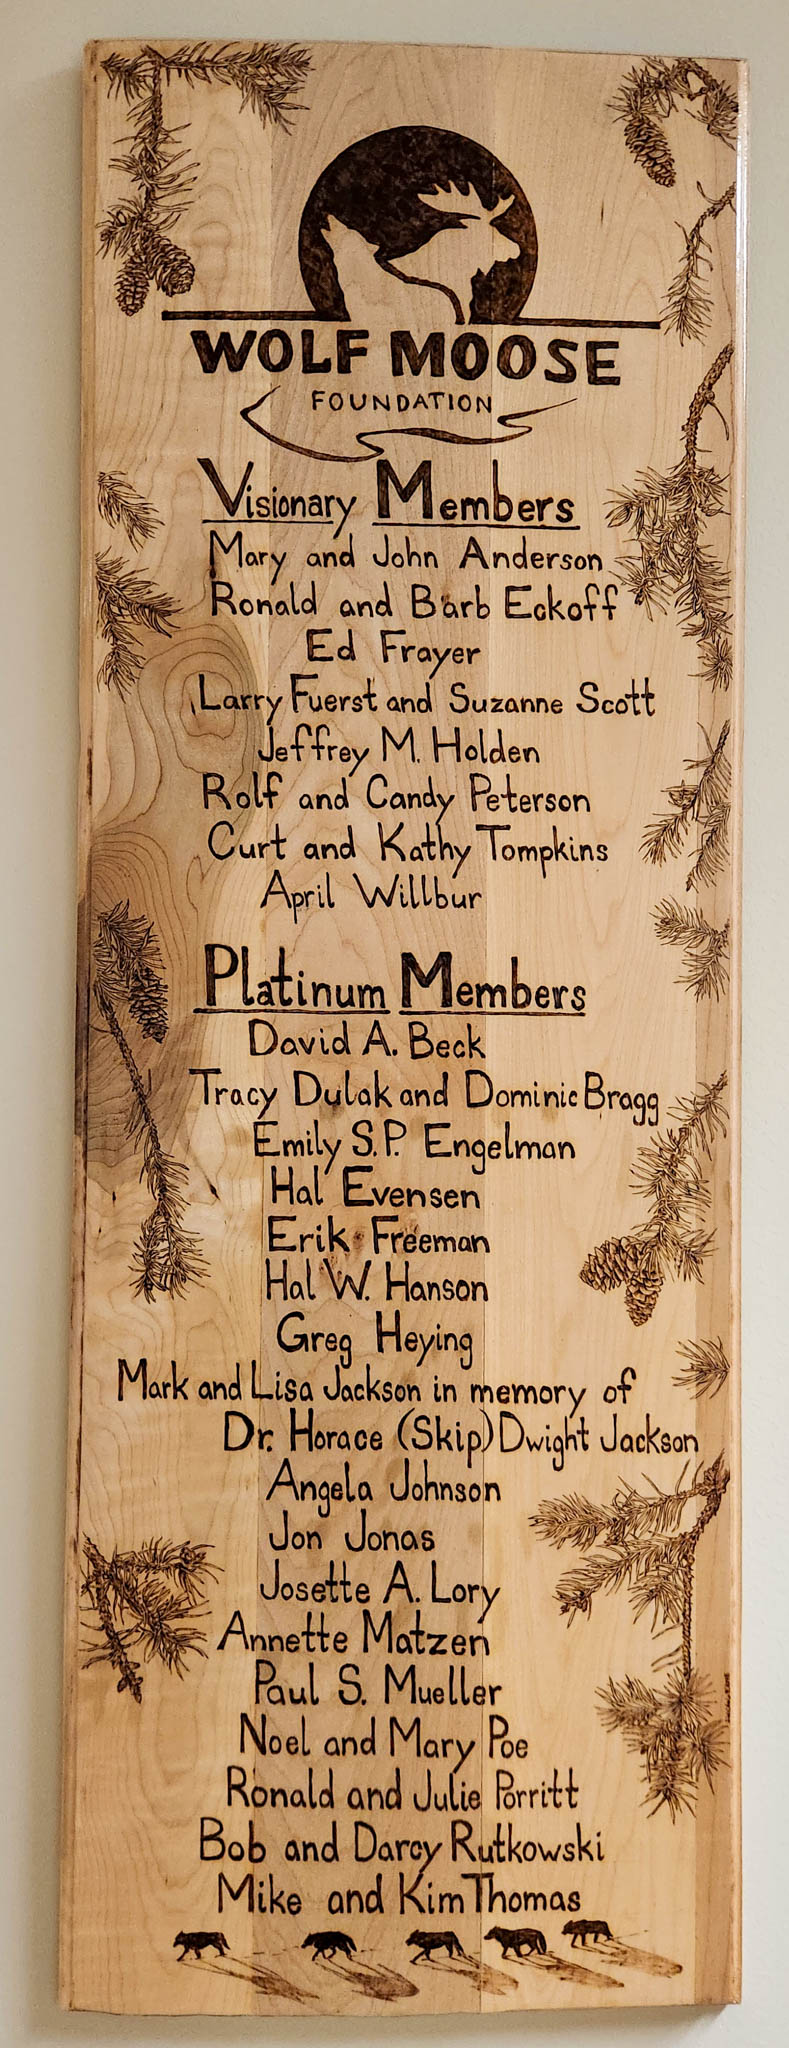 WOLF MOOSE
FOUNDATION
Visionary Members
Mary and John Anderson
Ronald and Barb Eckoff
Ed Frayer
Larry Fuerst and Suzanne Scott
Jeffrey M. Holden
Rolf and Candy Peterson
Curt and Kathy Tompkins
April Willbur
Platinum Members
David A. Beck
Tracy Dulak and Dominic Bragg
Emily S.P. Engelman
Hal Evensen
Erik Freeman
Hal W. Hanson
Greg Heying
Mark and Lisa Jackson in memory of
Dr. Horace (Skip) Dwight Jackson
Angela Johnson
Jon Jonas
Josette A. Lory
Annette Matzen
Paul S. Mueller
Noel and Mary Poe
Ronald and Julie Porritt
Bob and Darcy Rutkowski
Mike and Kim Thomas